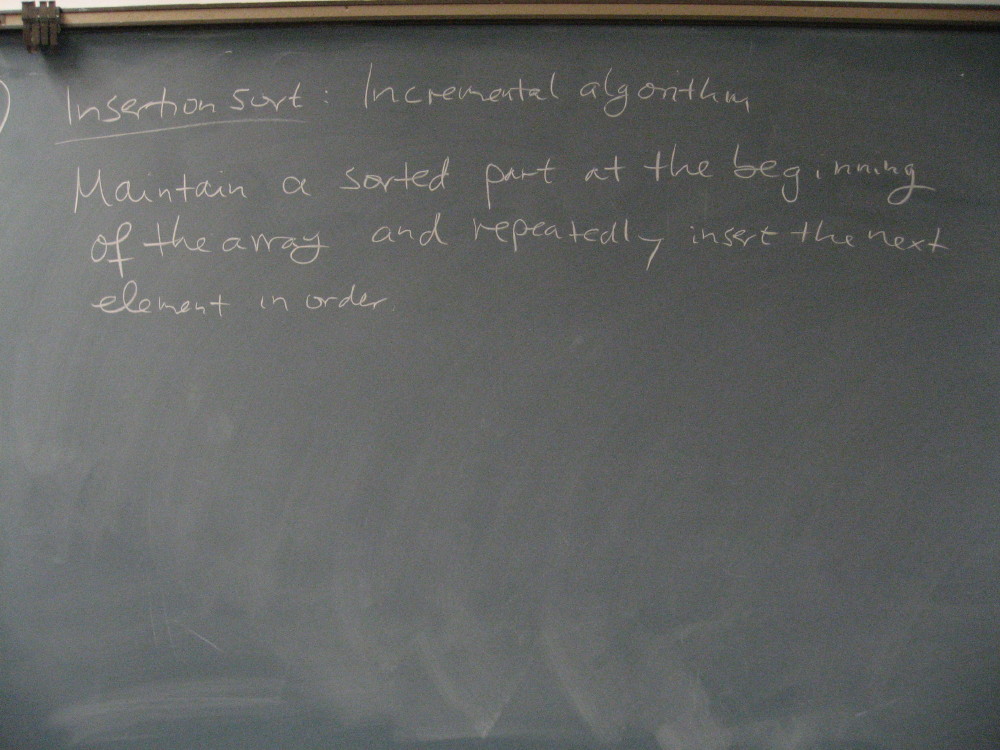 ) Insertion Sort: Incremental algorithm
Maintain a sorted part at the beginning
of the array and repeatedly insert the next
element in order.